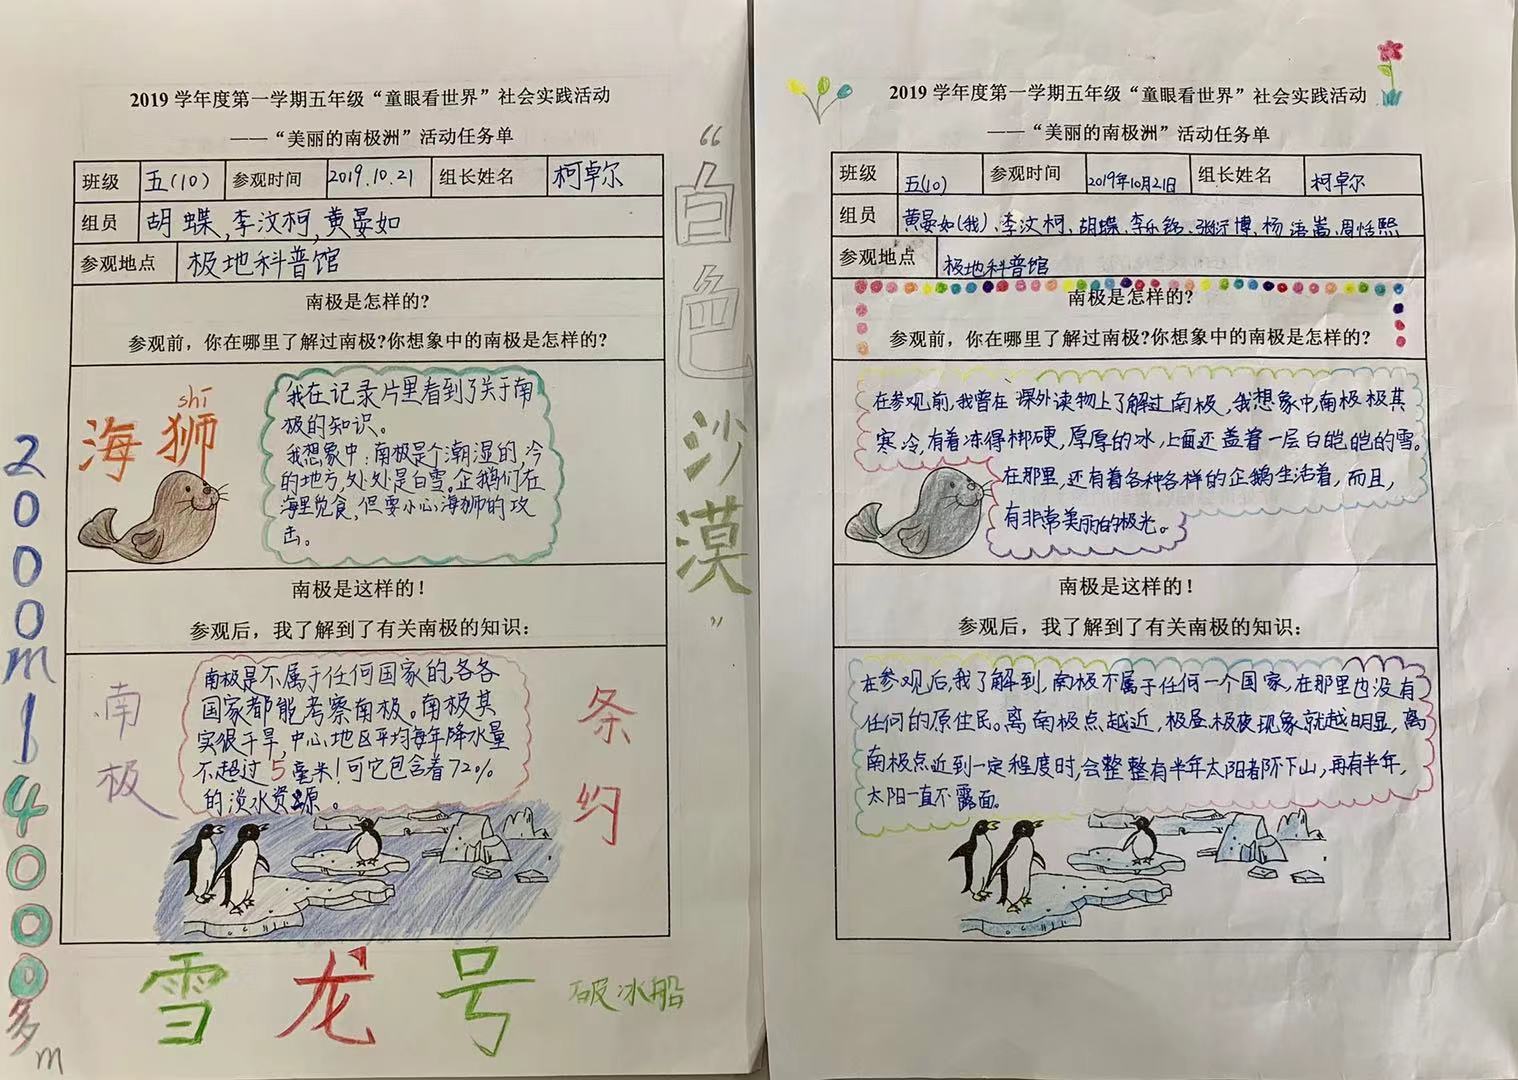 2019 学年度第一学期五年级“童眼看世界”社会实践活动
——“美丽的南极洲”活动任务单
班级 五(10) 参观时间 2019.10.21 组长姓名 柯卓尔
组员 胡蝶,李汶柯,黄晏如
参观地点 极地科普馆
南极是怎样的?
参观前，你在哪里了解过南极?你想象中的南极是怎样的?
shī
海狮
我在记录片里看到了关于南
极的知识。
我想象中:南极是个潮湿的,冷
的地方,处处是白雪。企鹅们在
海里觅食,但要小心海狮的攻
击。
南极是这样的！
参观后，我了解到了有关南极的知识：
南极
南极是不属于任何国家的,各各
国家都能考察南极。南极其
实很干旱,中心地区平均每年降水量
不超过5毫米!可它包含着72%
的淡水资源。
条约
雪龙号 破冰船
2000m 14000多m
“白色沙漠”
2019 学年度第一学期五年级“童眼看世界”社会实践活动
——“美丽的南极洲”活动任务单
班级 五(10) 参观时间 2019年10月21日 组长姓名 柯卓尔
组员 黄晏如(我)、李汶柯、胡蝶、李乐铭、张沂博、杨 嵩、周恬熙
参观地点 极地科普馆
南极是怎样的?
参观前，你在哪里了解过南极?你想象中的南极是怎样的?
在参观前,我曾在课外读物上了解过南极,我想象中,南极极其
寒冷,有着冻得梆硬,厚厚的冰,上面还盖着一层白皑皑的雪。
在那里,还有着各种各样的企鹅生活着,而且,
有非常美丽的极光。
南极是这样的！
参观后，我了解到了有关南极的知识：
在参观后,我了解到,南极不属于任何一个国家,在那里也没有
任何的原住民。离南极点越近,极昼极夜现象就越明显,离
南极点近到一定程度时,会整整有半年太阳都不下山,再有半年,
太阳一直不露面。